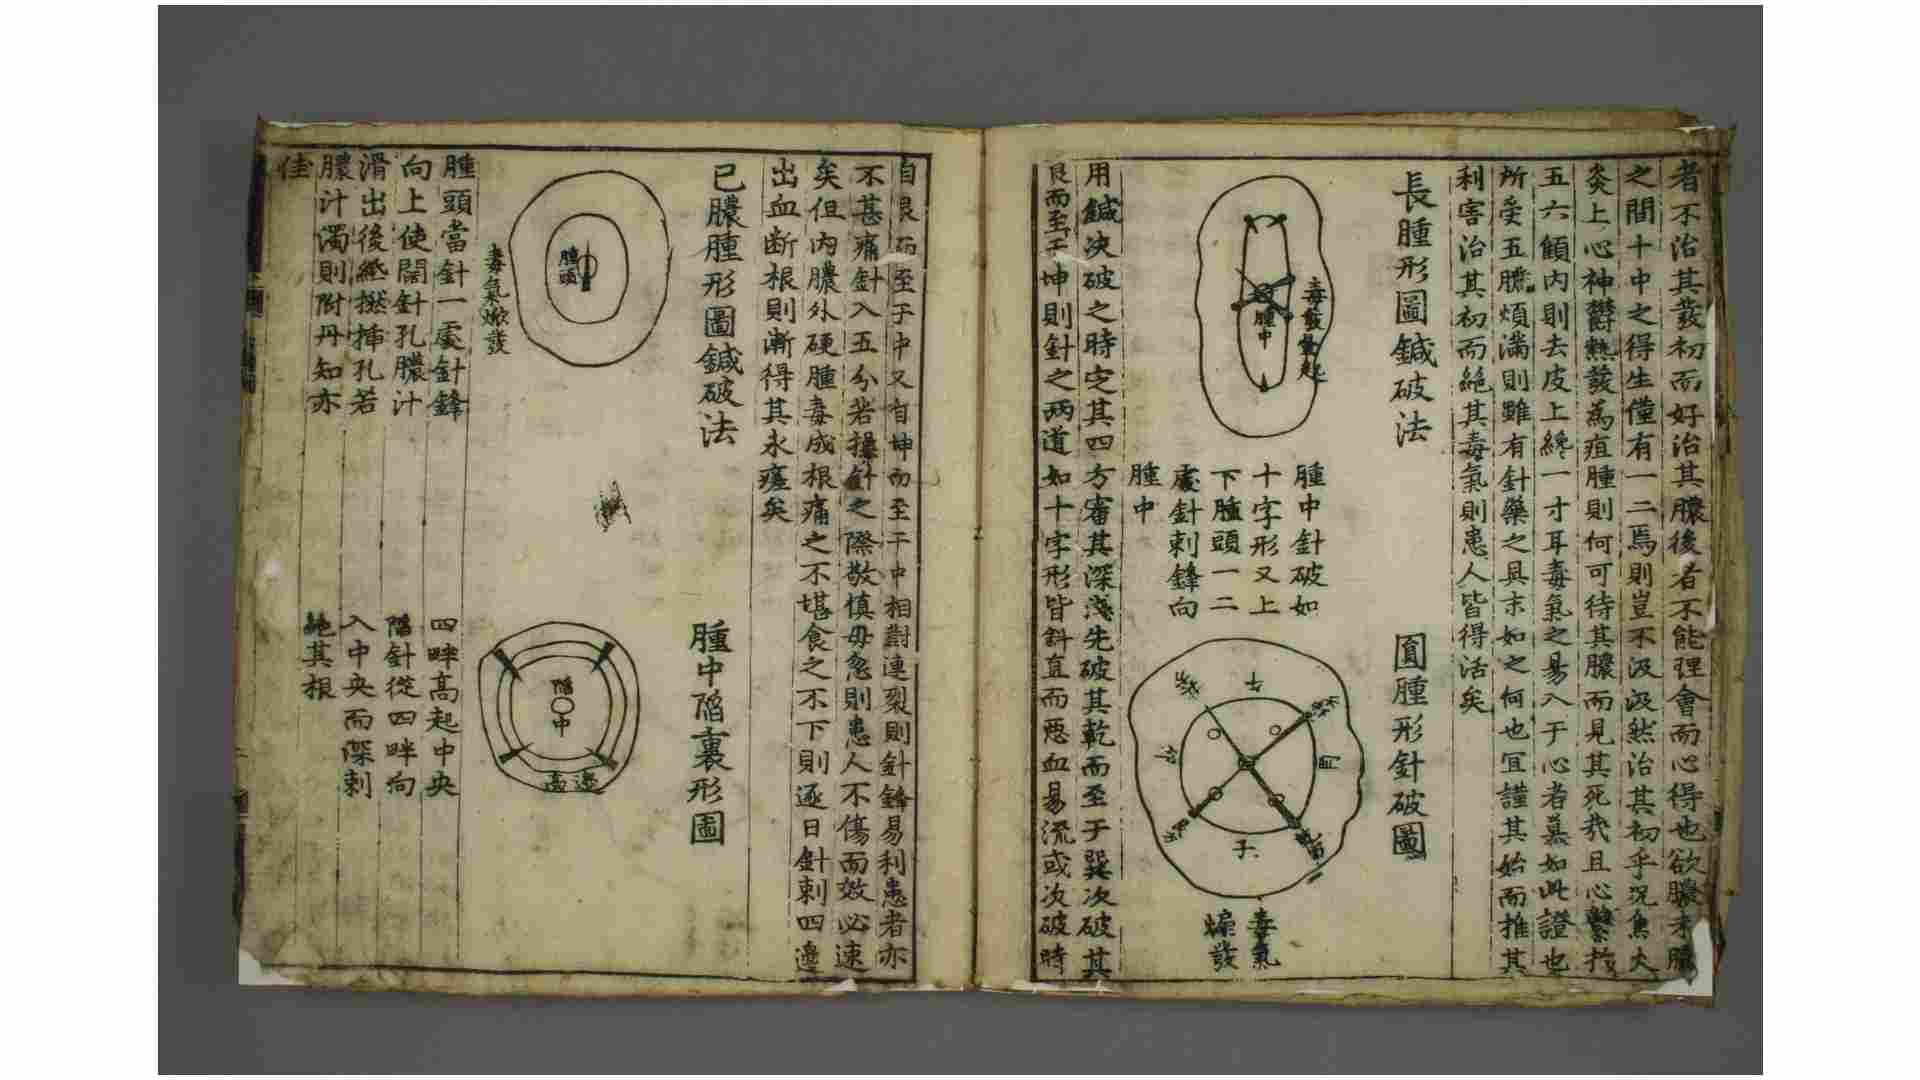 者不治其發初而好治其膿後者不能理會而心得也欲膿未膿
之間十中之得生僅有一二焉則豈不汲汲然治其初乎況焦火
炎上心神鬱熱發為疽腫則何可待其膿而見其死哉且心繫於
五六顀內則去皮上纔一寸耳毒氣之易入于心者慕如此證也
所受五臓煩滿則雖有針藥之具末如之何也宜謹其始而推其
利害治其初而絶其毒氣則患人皆得活矣
長腫形圖鍼破法
毒發氣起
腫中
腫中針破如
十字形又上
下腫頭一二
處針刺鋒向
腫中
圓腫形針破圖
午
酉
卯
子
毒氣
煸發
用鍼决破之時定其四方審其深淺先破其乾而至于巽次破其
艮而至于坤則針之两道如十字形皆斜直而惡血易流或次破時
自艮而至于中又自坤而至于中相對連裂則針鋒易利患者亦
不甚痛針入五分若操針之際敬慎毋忽則患人不傷而效必速
矣但内膿外硬腫毒成根痛之不堪食之不下則逐日針刺四邊
出血断根則漸得其永瘥矣
已膿腫形圖鍼破法
腫頭
毒氣焮發
腫頭當針一處針鋒
向上使闊針孔膿汁
滑出後紙撚揷孔若
膿汁濁則附丹知亦
佳
腫中䧟裏形圖
䧟中
邊高
四畔高起中央
䧟針從四畔向
入中央而深刺
絶其根